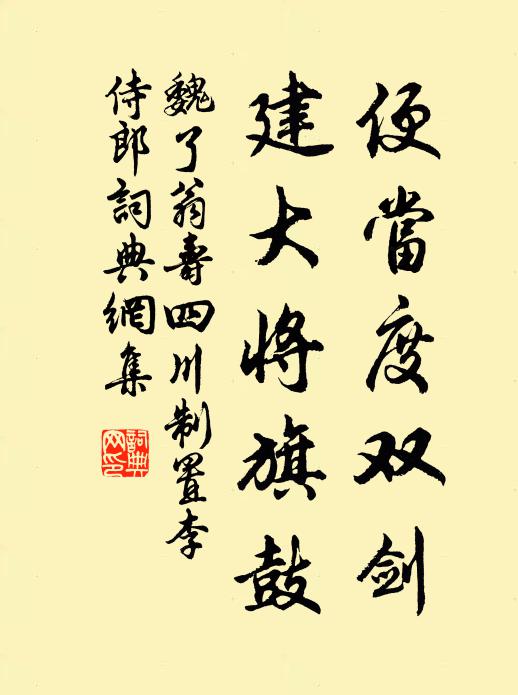 便當度双剑
建大将旗鼓
魏了翁壽四川制置李
侍郎詞典網集
詞典
网印